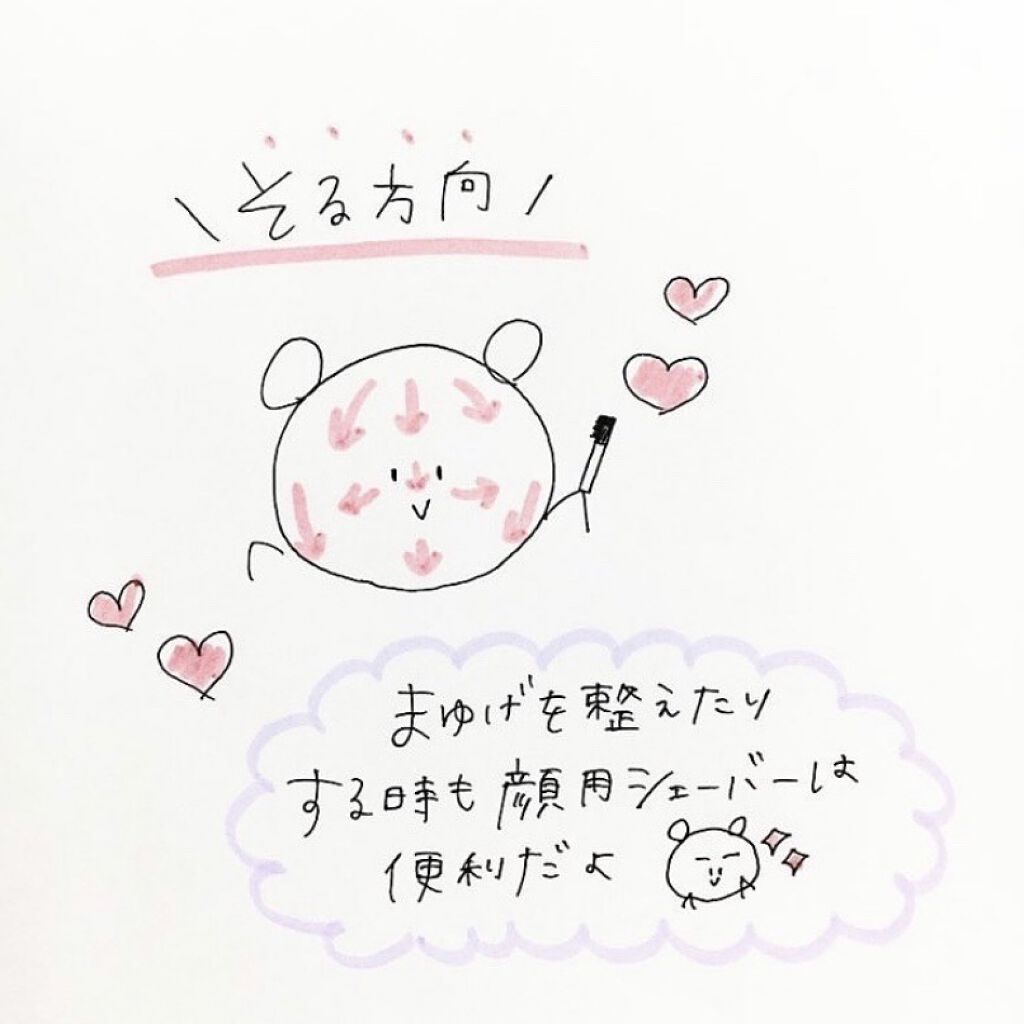 \そる方向/
まゆげを整えたり
する時も顔用シェーバーは
便利だよ